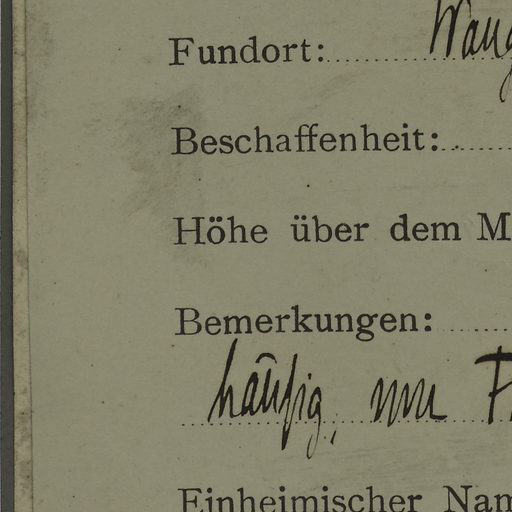 Fundort: Wang
Beschaffenheit:
Höhe über dem M
Bemerkungen:
häufig, nur
Einheimischer Nam